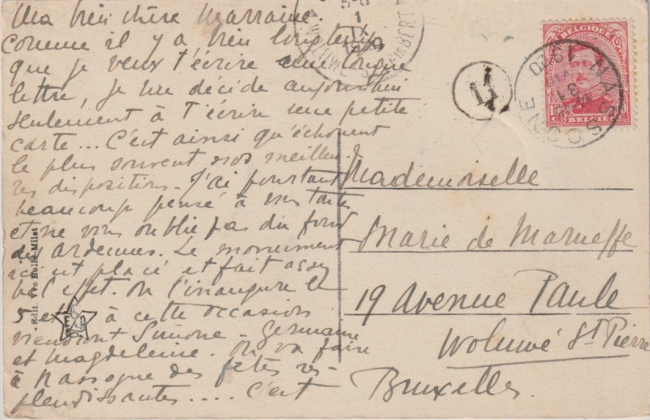 Ma bien chère Marraine.
Comme il y a bien longtemps
que je veux t'écrire une longue
lettre, je me décide aujourd'hui
seulement à t'écrire une petite
carte... C'est ainsi qu'échouent
le plus souvent nos meilleu-
res dispositions. J'ai pourtant
beaucoup pensé à
et ne vous oublie pas du fond
des Ardennes. Le monument
est placé et fait assez
bel effet. On l'inaugure le
5 à cette occasion
viendront Simone - Germaine
et Magdeleine. On va faire
à Nassogne des fêtes res-
plendissantes.... C'est
Edit. Vve Bolle-Milet
1
IX
1920
11
BELGIQUE
BELGIË
NASSOGNE
31
1920
Mademoiselle
Marie de Marneffe
19 Avenue Paule
Woluwé St Pierre
Bruxelles.